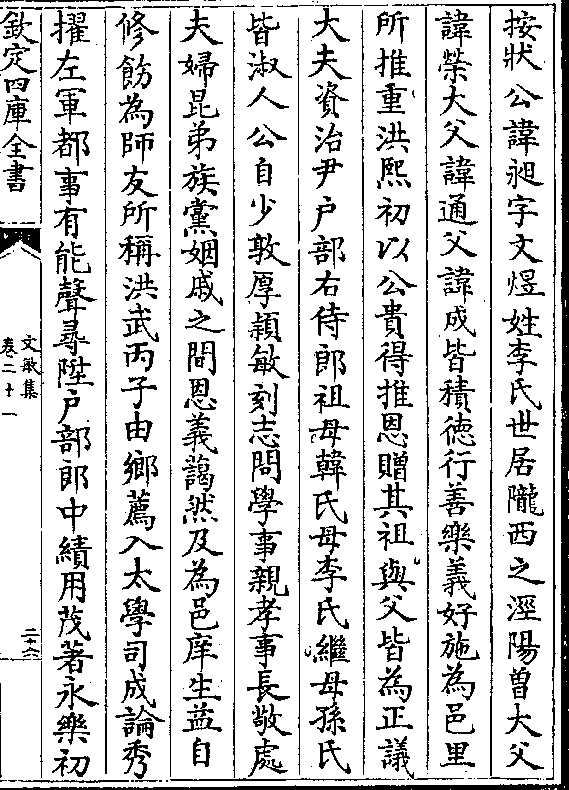 按狀公諱昶字文煜姓李氏世居隴西之涇陽曾大父
諱榮大父諱通父諱成皆積德行善樂義好施為邑里
所推重洪熙初以公貴得推恩贈其祖與父皆為正議
大夫資治尹户部右侍郎祖母韓氏母李氏繼母孫氏
皆淑人公自少敦厚穎敏刻志問學事親孝事長敬處
夫婦昆弟族黨姻戚之間恩義藹然及為邑庠生益自
修飭為師友所稱洪武丙子由鄉薦入太學司成論秀
擢左軍都事有能聲尋陞户部郎中績用茂著永樂初
欽定四庫全書
文敏集
卷二十一
二十六